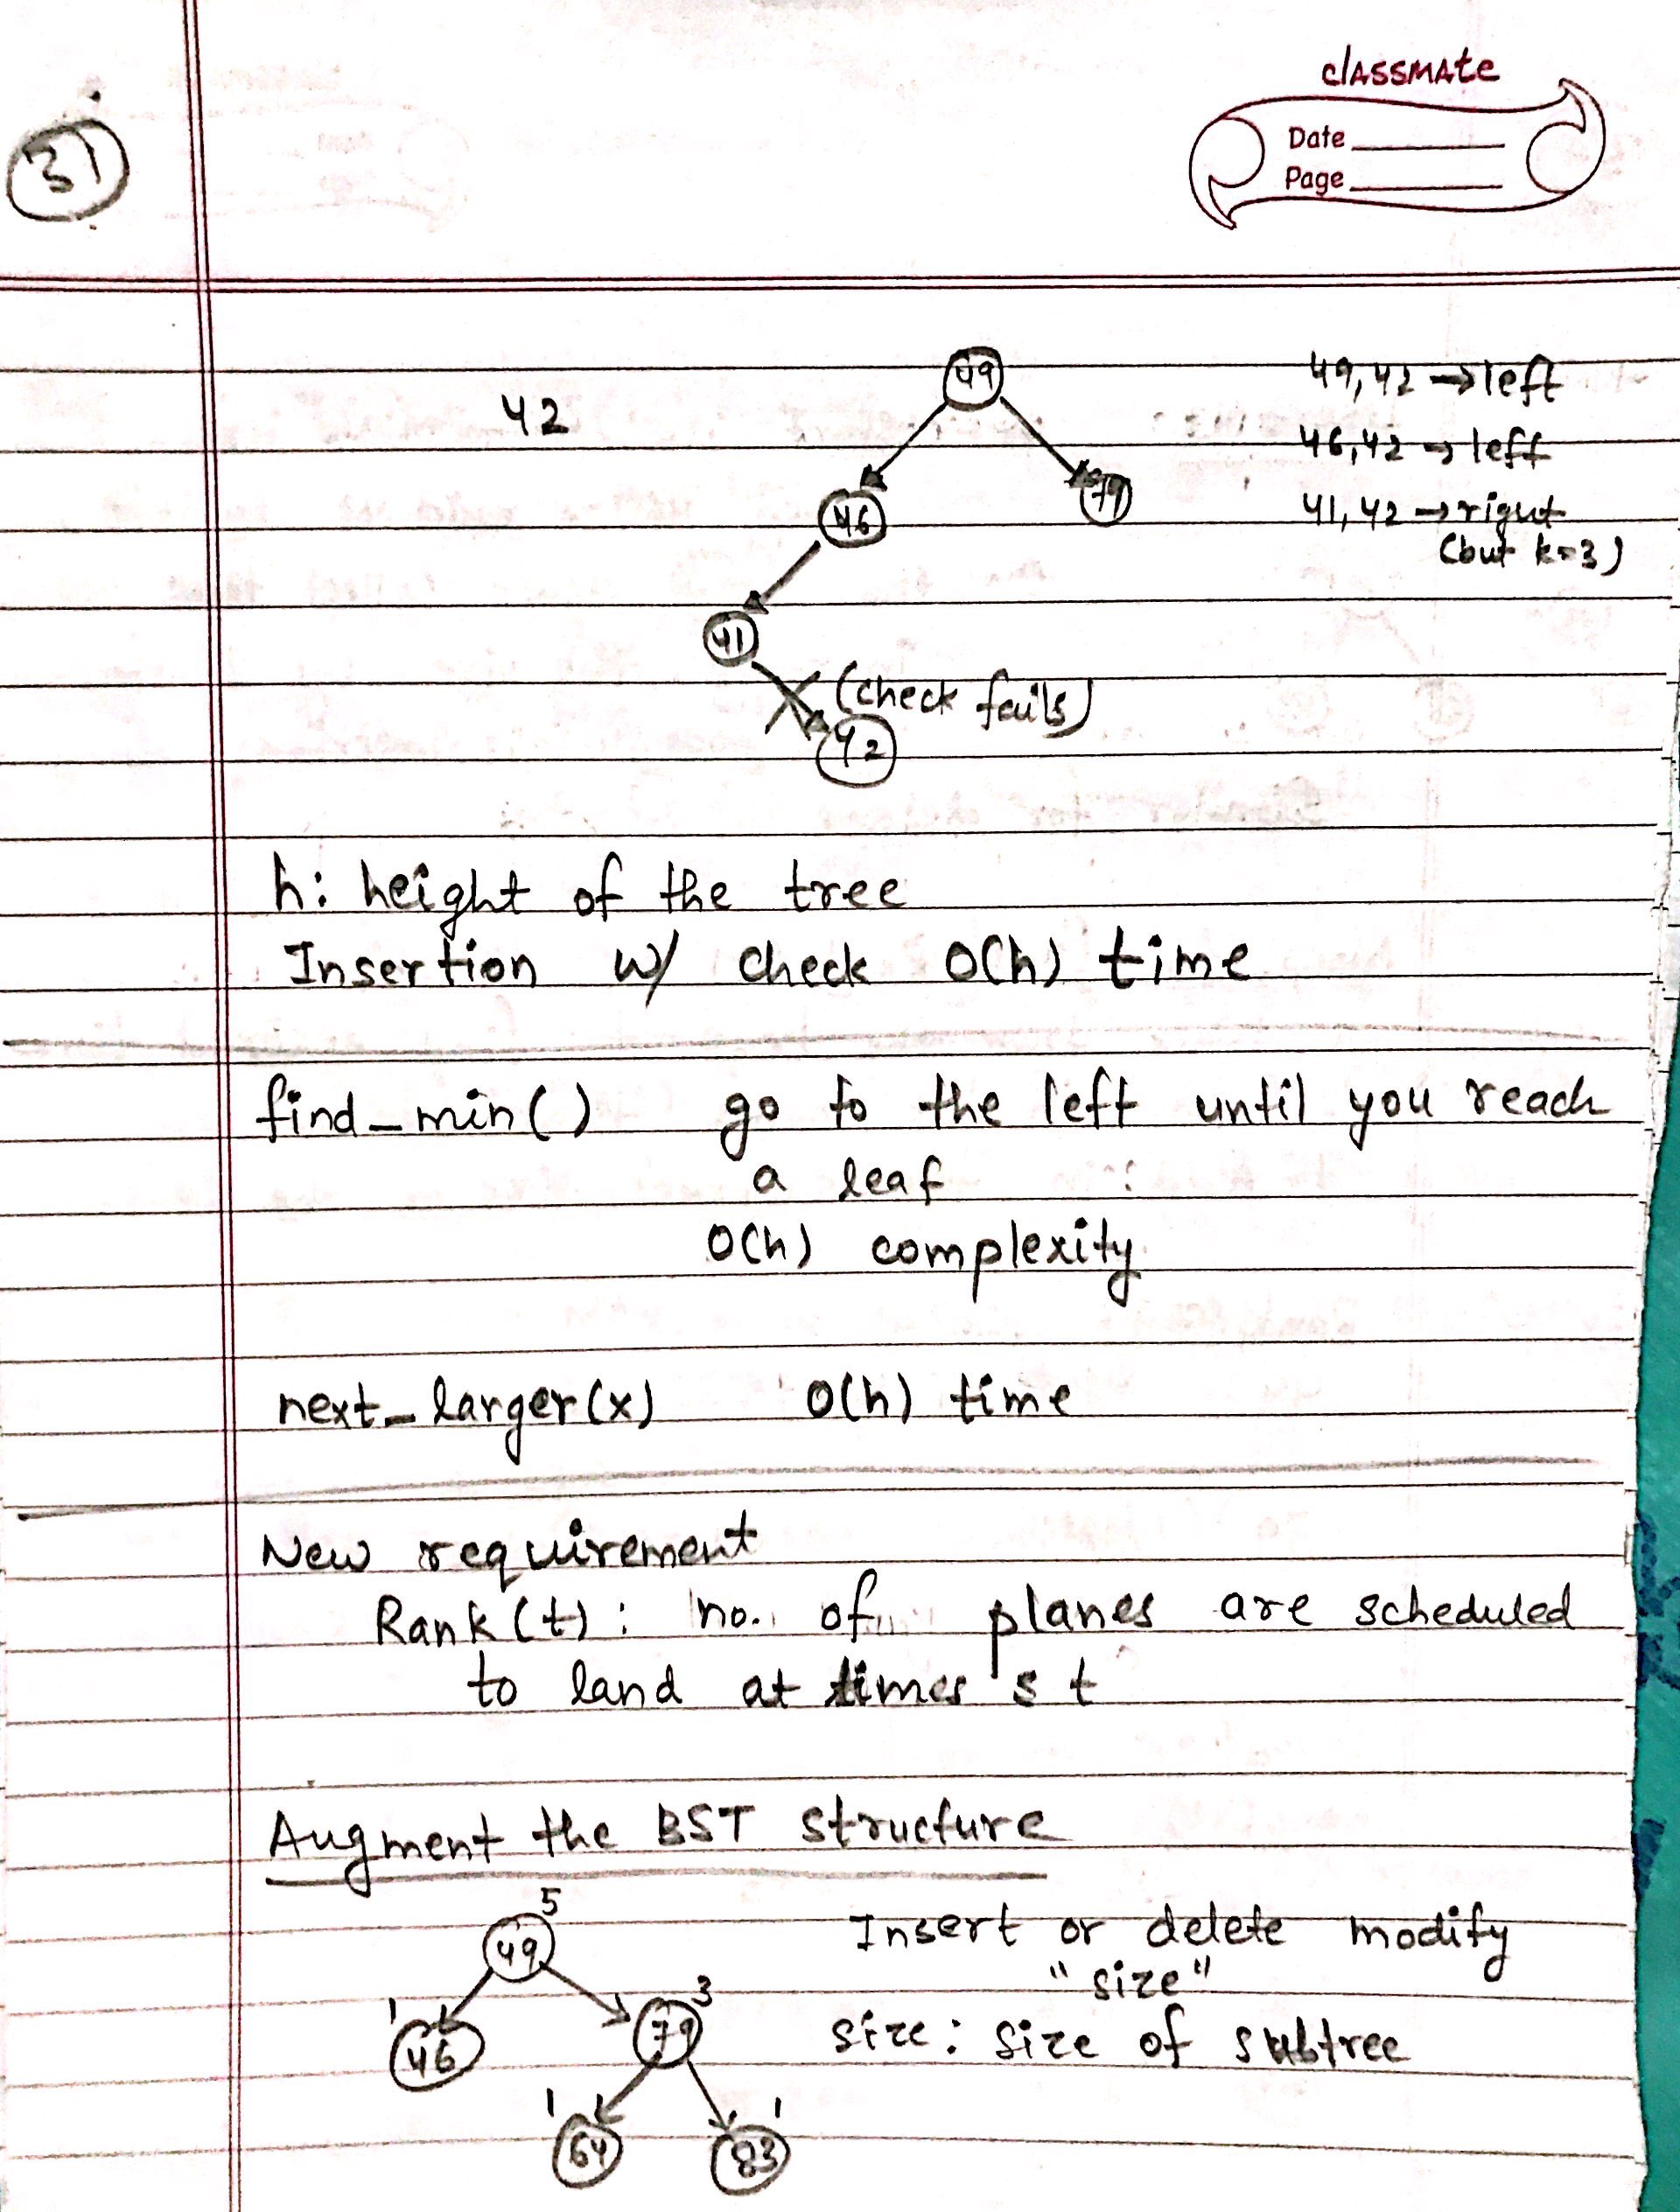 classmate
Date
Page
31
49
42
49,42 → left
46,42 → left
46
79
41,42 → right
(but k=3)
41
(check fails)
42
h: height of the tree
Insertion w/ check O(h) time
find_min() go to the left until you reach
a leaf
O(h) complexity
next_larger(x) O(h) time
New requirement
Rank(t): no. of planes are scheduled
to land at times ≤ t
Augment the BST structure
5
49
Insert or delete modify
"size"
1
3
46
79
size: size of subtree
1
1
64
83